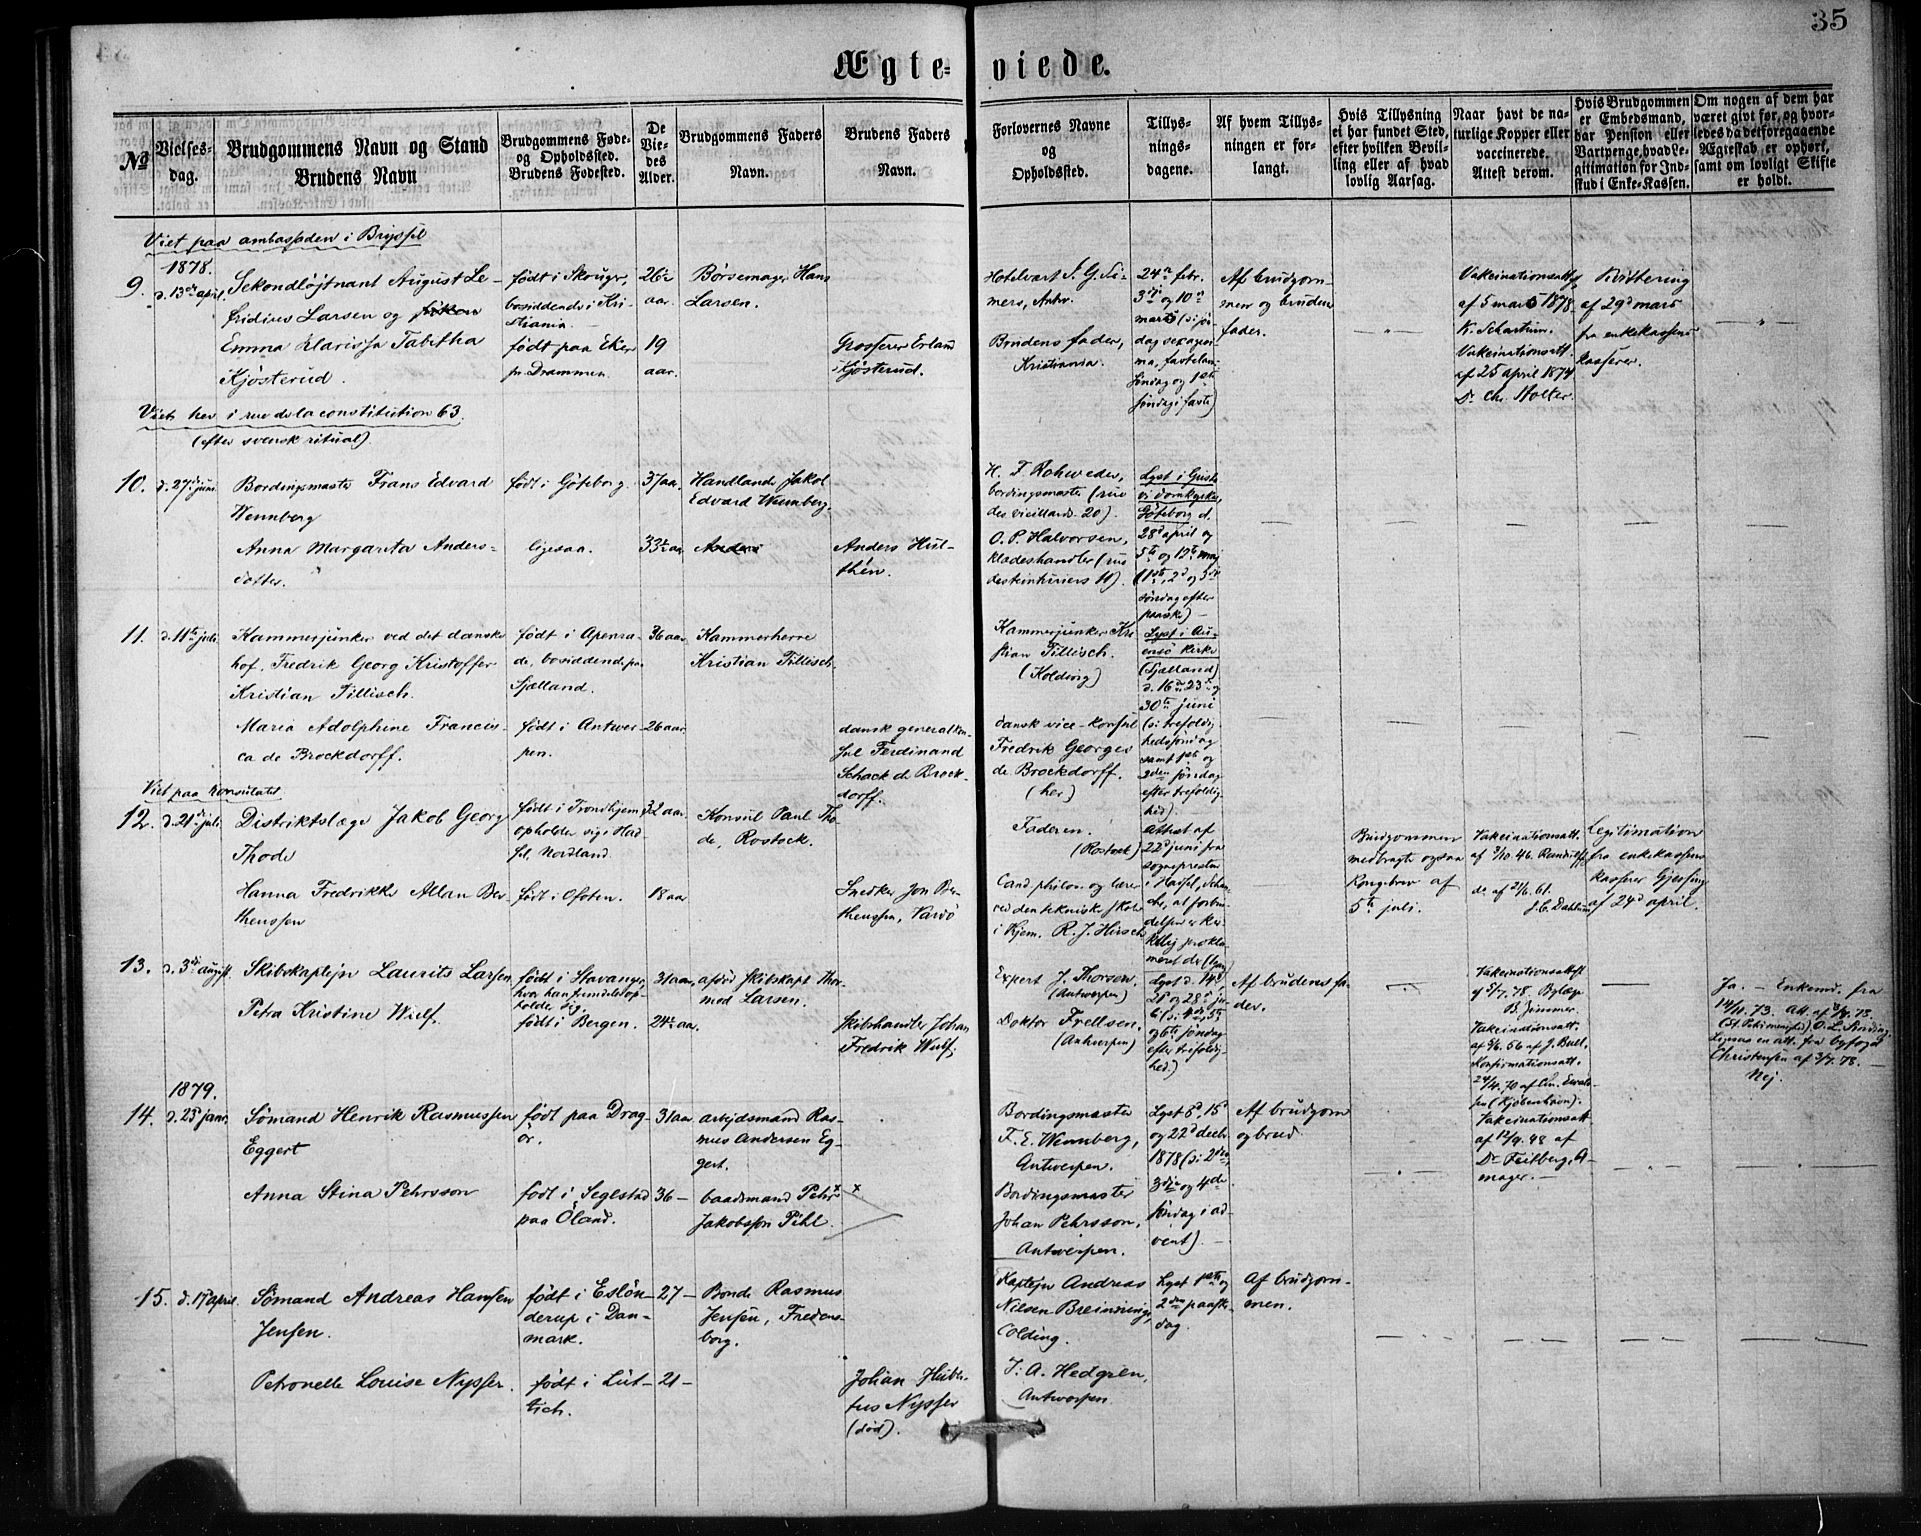 35
Ægte-viede.
No
Vielses-
dag.
Brudgommens Navn og Stand
Brudens Navn
Brudgommens Føde-
og Opholdssted.
Brudens Fødested.
De
Vie-
des
Alder.
Brudgommens Faders
Navn.
Brudens Faders
Navn.
Forlovernes Navne
og
Opholdssted.
Tillys-
nings-
dagene.
Af hvem Tillys-
ningen er for-
langt.
Hvis Tillysning
ei har fundet Sted,
efter hvilken Bevil-
ling eller af hvad
lovlig Aarsag.
Naar havt de na-
turlige Kopper eller
vaccinerede.
Attest derom.
Hvis Brudgommen
er Embedsmand,
har Pension eller
Vartpenge, hvad Le-
gitimation for Ind-
skud i Enke-Kassen.
Om nogen af dem har
været givt før, og hvor-
ledes da det foregaaende
Ægteskab er ophørt,
samt om lovligt Skifte
er holdt.
Viet paa ambassaden i Bryssel
1878.
9.
d. 13de april.
Sekondløjtnant August Le-
fridius Larsen og frøken
Emma Klarissa Tabitha
Kjøsterud.
født i Skouger,
bosiddende i Kri-
stiania.
født paa Eker
pr. Drammen.
26½
aar.
19
aar.
Børsemager Hans
Larsen.
Grosserer Erland
Kjøsterud.
Hotelvært S. G. Ti-
mers, Antw.
Brudens fader,
Kristiania.
24de febr.
3die og 10de
marts (ɔ: søn-
dag sexagesi-
ma, fastelavn
søndag og 1ste
søndag i faste)
Af brudgom-
men og brudens
fader.
"
Vakcinationsatt.
af 5 marts 1878.
K. Schartum.
Vakcinationsatt.
af 25 april 1874
Dr. Chr. Holter.
Kvittering
af 29d mars
fra enkekassens
kasserer.
"
Viet her i rue de la constitution 63.
(efter svensk ritual)
10.
d. 27de juni.
Bordingsmaster Frans Edvard
Wennberg
Anna Margareta Anders-
dotter.
født i Göteborg.
ligesaa.
37 aar.
33½ aar
Handlande Jakob
Edvard Wennberg.
Anders
Anders Hul-
thén.
H. F. Rohweder,
bordingsmaster (rue
des vieillards 20).
O. P. Halvorsen,
klædeshandler (rue
des teinturiers 11).
Lyst i Gusta-
vi domkyrka,
Göteborg d.
28d april og
5te og 12te maj
(1ste, 2d og 3die
søndag efter
paaske)
11.
d. 11te juli.
Kammerjunker ved det danske
hof, Fredrik Georg Kristoffer
Kristian Tillisch.
Maria Adolphine Francis-
ca de Brockdorff.
født i Apenra-
de, bosiddend. paa
Sjælland.
født i Antwer-
pen.
36 aar
26 aar
Kammerherre
Kristian Tillisch.
dansk generalkon-
sul Ferdinand
Schack de Brock-
dorff.
Kammerjunker Kri-
stian Tillisch.
(Kolding)
dansk vice-konsul
Fredrik Georges
de Brockdorff.
(her)
(Sjælland)
d. 16de 23de og
30te juni
(ɔ: trefoldig-
hedssøndag
samt 1ste og
2den søndag
efter trefoldig-
hed).
Viet paa konsulatet
12.
d. 21de juli
Distriktslæge Jakob Georg
Thode
Hanna Fredrikke Allan Ber-
thenssen
født i Trondhjem,
opholder sig i Had-
sel, Nordland.
født i Ofoten.
32 aar
18 aar
Konsul Paul Tho-
de, Rostock.
Snedker Jon Ber-
thenssen, Vardö
Faderen.
(Rostock)
Cand. philos. og lærer
ved den tekniske skole
i Hjem. R. J. Hirsch
Attest af
22d juni fra
sognepresten
Brudgommen
medbragte ogsaa
Kongebrev af
5te juli.
Vakcinationsatt.
af 3/10. 46.
do. af 21/6. 61.
J. C. Dahl
Legitimation
fra enkekassens
kasserer Gjessing
af 24d april.
13.
d. 3die august.
Skibskaptejn Laurits Larsen,
Petra Kristine Wulf.
født i Stavanger,
hvor han fremdeles op-
holder sig.
født i Bergen.
31 aar,
24½ aar.
afdød skibskapt. Thor-
mod Larsen.
Skibshandler Johan
Fredrik Wulf.
Expert J. Thorsen,
(Antwerpen)
Doktor Frellsen,
(Antwerpen)
Lyst d. 14de,
21d og 28de ju-
li (ɔ: 4de, 5te
og 6te søndag
efter trefoldig-
hed.)
Af brudens fa-
der.
Vakcinationsattst
af 5/7. 78. Bylæge
B. Zimmer.
Vakcinationsatt.
af 9/6. 56 af J. Bull.
Konfirmationsatt.
24/4. 70 af Chr. Ewald-
sen (Kjøbenhavn).
Ja. — Enkemd. fra
14/11. 73. Att. af 3/7. 78.
(St. Petri menighed) O. L. Sinding
Ligesaa en att. fra byfoged
Christensen af 3/7. 78. —
Nej.
1879.
14.
d. 23d janr.
Sømand Henrik Rasmussen
Eggert
Anna Stina Pehrsson
født paa Drag-
ör.
født i Segelstad
paa Öland.
31 aar
36 —
arbejdsmand Ras-
mus Andersen Eg-
gert.
baadsmand Pehr x
Jakobsson Pihl.
x
Bordingsmaster
F. E. Wennberg,
Antwerpen.
Bordingsmaster
Johan Pehrsson,
Antwerpen.
Lyst 8d, 15d
og 22d decbr.
1878 (ɔ: 2den,
3die og 4de
søndag i ad-
vent).
Af brudgom
og brud.
Vakcinationsatt
af 12/9. 48 af
Dr. Feilberg, A-
mager. —
15.
d. 17 april.
Sømand Andreas Hansen
Jensen.
Petronelle Louise Nysser.
født i Eslön-
derup i Dan-
mark.
født i Lüt-
tich.
27 —
21 —
Bonde Rasmus
Jensen, Fredens-
borg.
Johan Huber-
tus Nysser
(død).
Kaptejn Andreas
Nilsen Breinning,
Colding.
J. A. Hedgren,
Antwerpen
Lyst 1ste og
2den paaske-
dag.
Af brudgom-
men.